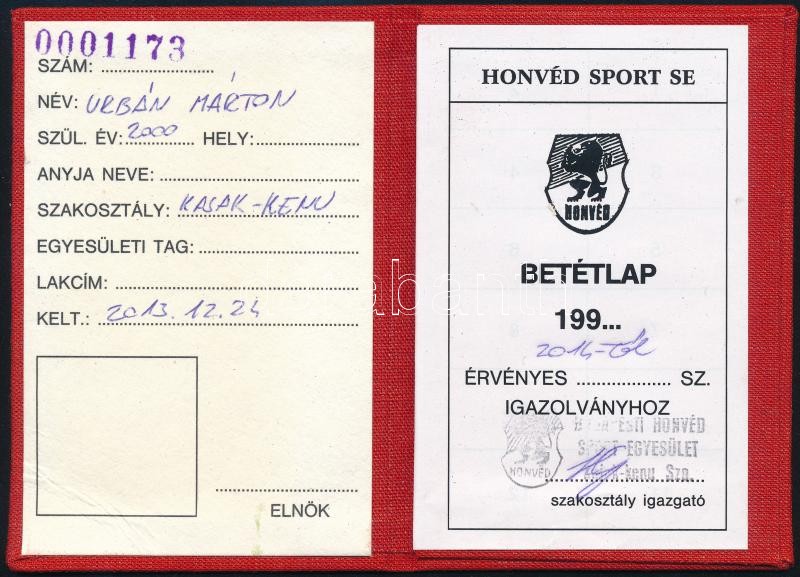 0001173
SZÁM: ........................
NÉV: URBÁN MÁRTON
SZÜL. ÉV: 2000 HELY: ........................
ANYJA NEVE: ........................
SZAKOSZTÁLY: KAJAK-KENU
EGYESÜLETI TAG: ........................
LAKCÍM: ........................
KELT.: 2013.12.24
ELNÖK
HONVÉD SPORT SE
HONVÉD
BETÉTLAP
199...
2014-től
ÉRVÉNYES .................... SZ.
IGAZOLVÁNYHOZ
BUDAPESTI HONVÉD
SPORT EGYESÜLET
HONVÉD
Kajak-kenu Szo.
szakosztály igazgató